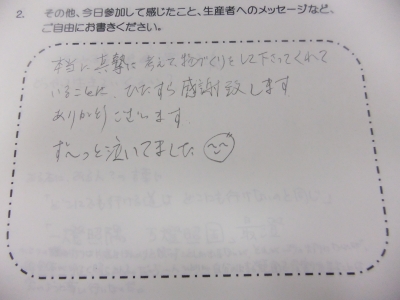 2. その他、今日参加して感じたこと、生産者へのメッセージなど、
ご自由にお書きください。
本当に真摯に考えて物づくりをして下さってくれて
いることに、ひたすら感謝致します
ありがとうございます.
ず〜っと泣いてました